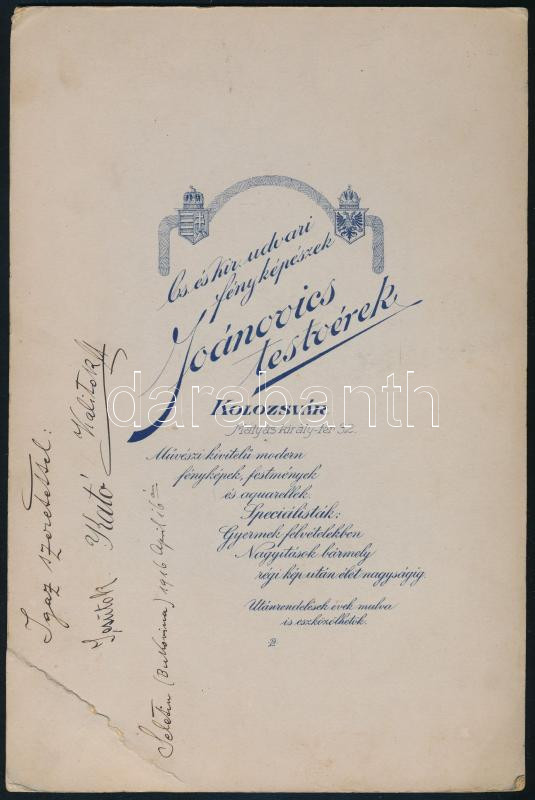 Cs. és kir. udvari
fényképészek
Joánovics
testvérek
KOLOZSVÁR
Mátyás király-tér 32.
Művészi kivitelű modern
fényképek, festmények
és aquarellek.
Speciálisták:
Gyermek felvételekben
Nagyítások bármely
régi kép után élet nagyságig.
Utánrendelések évek mulva
is eszközölhetők.
Igaz szeretettel:
Kató
Seletin (Bukovina) 1916 April 16 án
darabanth